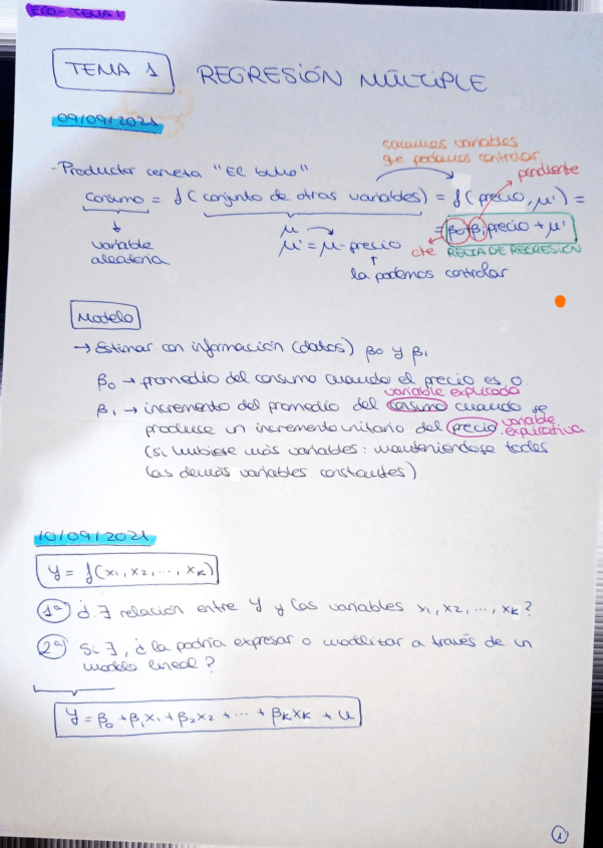 ECO - TEMA 1
TEMA 1 REGRESIÓN MÚLTIPLE
09/09/2021
sacamos variables
que podamos controlar
- Productor cerveza "El buho"
pendiente
consumo = f (conjunto de otras variables) = f (precio, μ') =
= β0 + β1 precio + μ'
cte RECTA DE REGRESIÓN
variable
aleatoria
μ →
μ' = μ - precio
↑
la podemos controlar
Modelo
→ Estimar con información (datos) β0 y β1
β0 → promedio del consumo cuando el precio es 0
variable explicada
β1 → incremento del promedio del consumo cuando se
produce un incremento unitario del precio variable explicativa
(si hubiese más variables: manteniéndose todas
las demás variables constantes)
10/09/2021
y = f(x1, x2, ..., xK)
1º ¿∃ relación entre y y las variables x1, x2, ..., xK?
2º Si ∃, ¿la podría expresar o modelizar a través de un
modelo lineal?
y = β0 + β1x1 + β2x2 + ... + βKxK + u
1